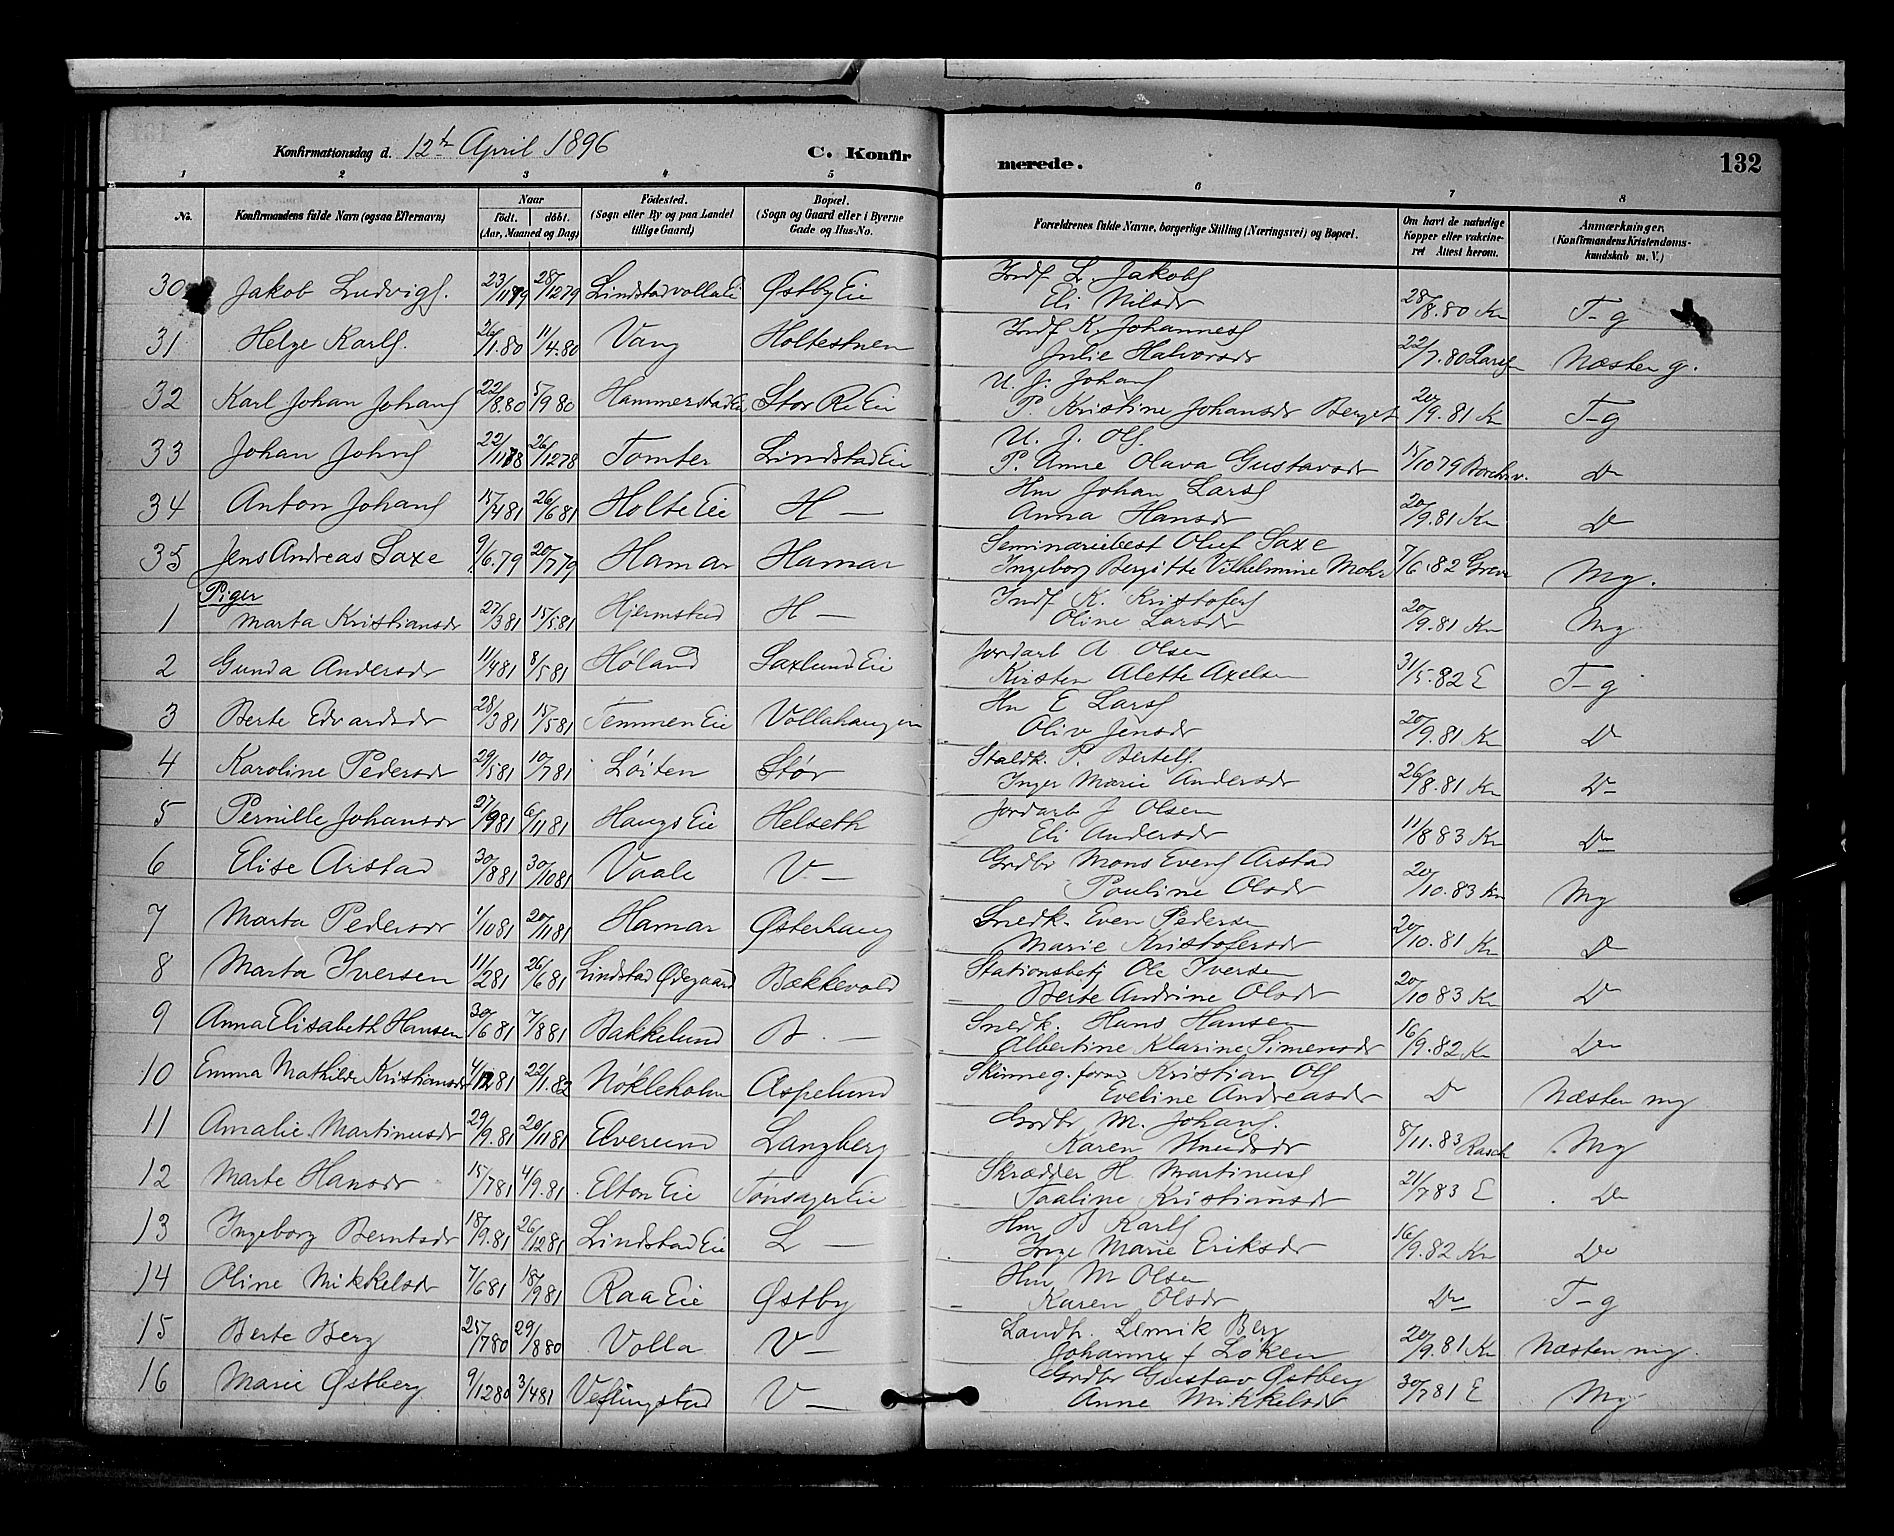 Konfirmationsdag d. 12te April 1896 C. Konfir merede. 132
1 2 3 4 5 6 7 8
No. Konfirmandens fulde Navn (ogsaa Efternavn) Naar født. døbt. (Aar, Maaned og Dag) Fødested. (Sogn eller By og paa Landet tillige Gaard) Bopæl. (Sogn og Gaard eller i Byerne Gade og Hus-No. Forældrenes fulde Navne, borgerlige Stilling (Næringsvei) og Bopæl. Om havt de naturlige Kopper eller vakcineret Attest herom. Anmærkninger, (Konfirmandens Kristendomskundskab m. V.)
30 Jakob Ludvigs. 23/11 79 28/12 79 Lindstadvolla Eie Østby Eie Indf L. Jakobs
Eli Nilsdr 28/8.80 Kr T-g
31 Helge Karls. 26/1.80 11/4.80 Vang Holtestuen Indf K. Johanness
Julie Halvorsdr 22/7.80 Larsen Næsten g.
32 Karl Johan Johans 22/8.80 5/9 80 Hammerstad Eie Stor Re Eie U. J. Johans
P. Kristine Johansdr Berget 20/9.81 Kr T-g
33 Johan Johns 22/11 78 26/12 78 Tomter Lindstad Eie U. J. Ols.
P. Anne Olava Gustavsdr 15/10 79 D
34 Anton Johans 15/4 81 26/6 81 Holte Eie H — Hm Johan Lars
Anna Hansdr 20/9.81 Kr D
35 Jens Andreas Saxe 9/6.79 20/7 79 Hamar Hamar Seminariebest Oluf Saxe
Ingeborg Bergitte Vilhelmine Mohr 7/6.82 Greve Mg.
Piger
1 Marta Kristiansdr 27/3 81 15/5.81 Hjermstad H — Indf K. Kristofers
Oline Larsdr 20/9.81 Kr Mg
2 Gunda Andersdr 11/4 81 8/5 81 Høland Saxlund Eie Jordarb A Olsen
Kirsten Alette Axelsen 31/5.82 E T-g
3 Berte Edvardsdr 28/3 81 15/5 81 Temmen Eie Vollahaugen Hm E Lars
Oliv Jensdr 20/9.81 Kr D
4 Karoline Pedersdr 29/5 81 10/7 81 Löiten Stör Staldk. P. Bertels.
Inger Marie Andersdr 26/8.81 Kr D
5 Pernille Johansdr 27/9 81 6/11 81 Haugs Eie Helseth Jordarb J Olsen
Eli Andersdr 11/8 83 Kr D
6 Elise Arstad 30/8 81 30/10 81 Vaale V — Grdbr Mons Evens Arstad
Pauline Olsdr 20/10.83 Kr Mg
7 Marta Pedersdr 1/10 81 20/11 81 Hamar Østerhaug Snedk. Even Pedersen
Marie Kristofersdr 20/10.81 Kr D
8 Marta Iversen 11/2 81 26/6 81 Lindstad Ødegaard Bækkevold Stationsbetj Ole Iversen
Berte Andrine Olsdr 20/10.83 Kr D
9 Anna Elisabeth Hansen 30/6 81 7/8 81 Bakkelund B — Snedk. Hans Hansen
Albertine Klarine Simensdr 16/9.82 Kr D
10 Emma Mathilde Kristiansdr 4/12 81 22/1.82 Nökleholm Aspelund Skinneg. form Kristian Ols
Eveline Andreasdr D Næsten mg
11 Amalie Martinusdr 29/9.81 20/11 81 Elverum Langberg Grdbr M. Johans.
Karen Knudsdr 8/11.83 Rasch Mg
12 Marte Hansdr 15/7 81 4/9.81 Elton Eie Tönsager Eie Skrædder H. Martinus
Taaline Kristiansdr 21/7 83 E D
13 Ingeborg Berntsdr 18/9.81 26/12 81 Lindstad Eie L — Hm B Karls
Inge Marie Eriksdr 16/9.82 Kr D
14 Oline Mikkelsdr 7/6 81 18/9 81 Raa Eie Østby Hm M Olsen
Karen Olsdr D T-g
15 Berte Berg 25/7 80 29/8 80 Volla V — Landh. Lemik Berg
Johanne f Löken 20/9.81 Kr Næsten mg.
16 Marie Østberg 9/12 80 3/4 81 Veflingstad V — Grdbr Gustav Østberg
Anne Mikkelsdr 30/7 81 E Mg